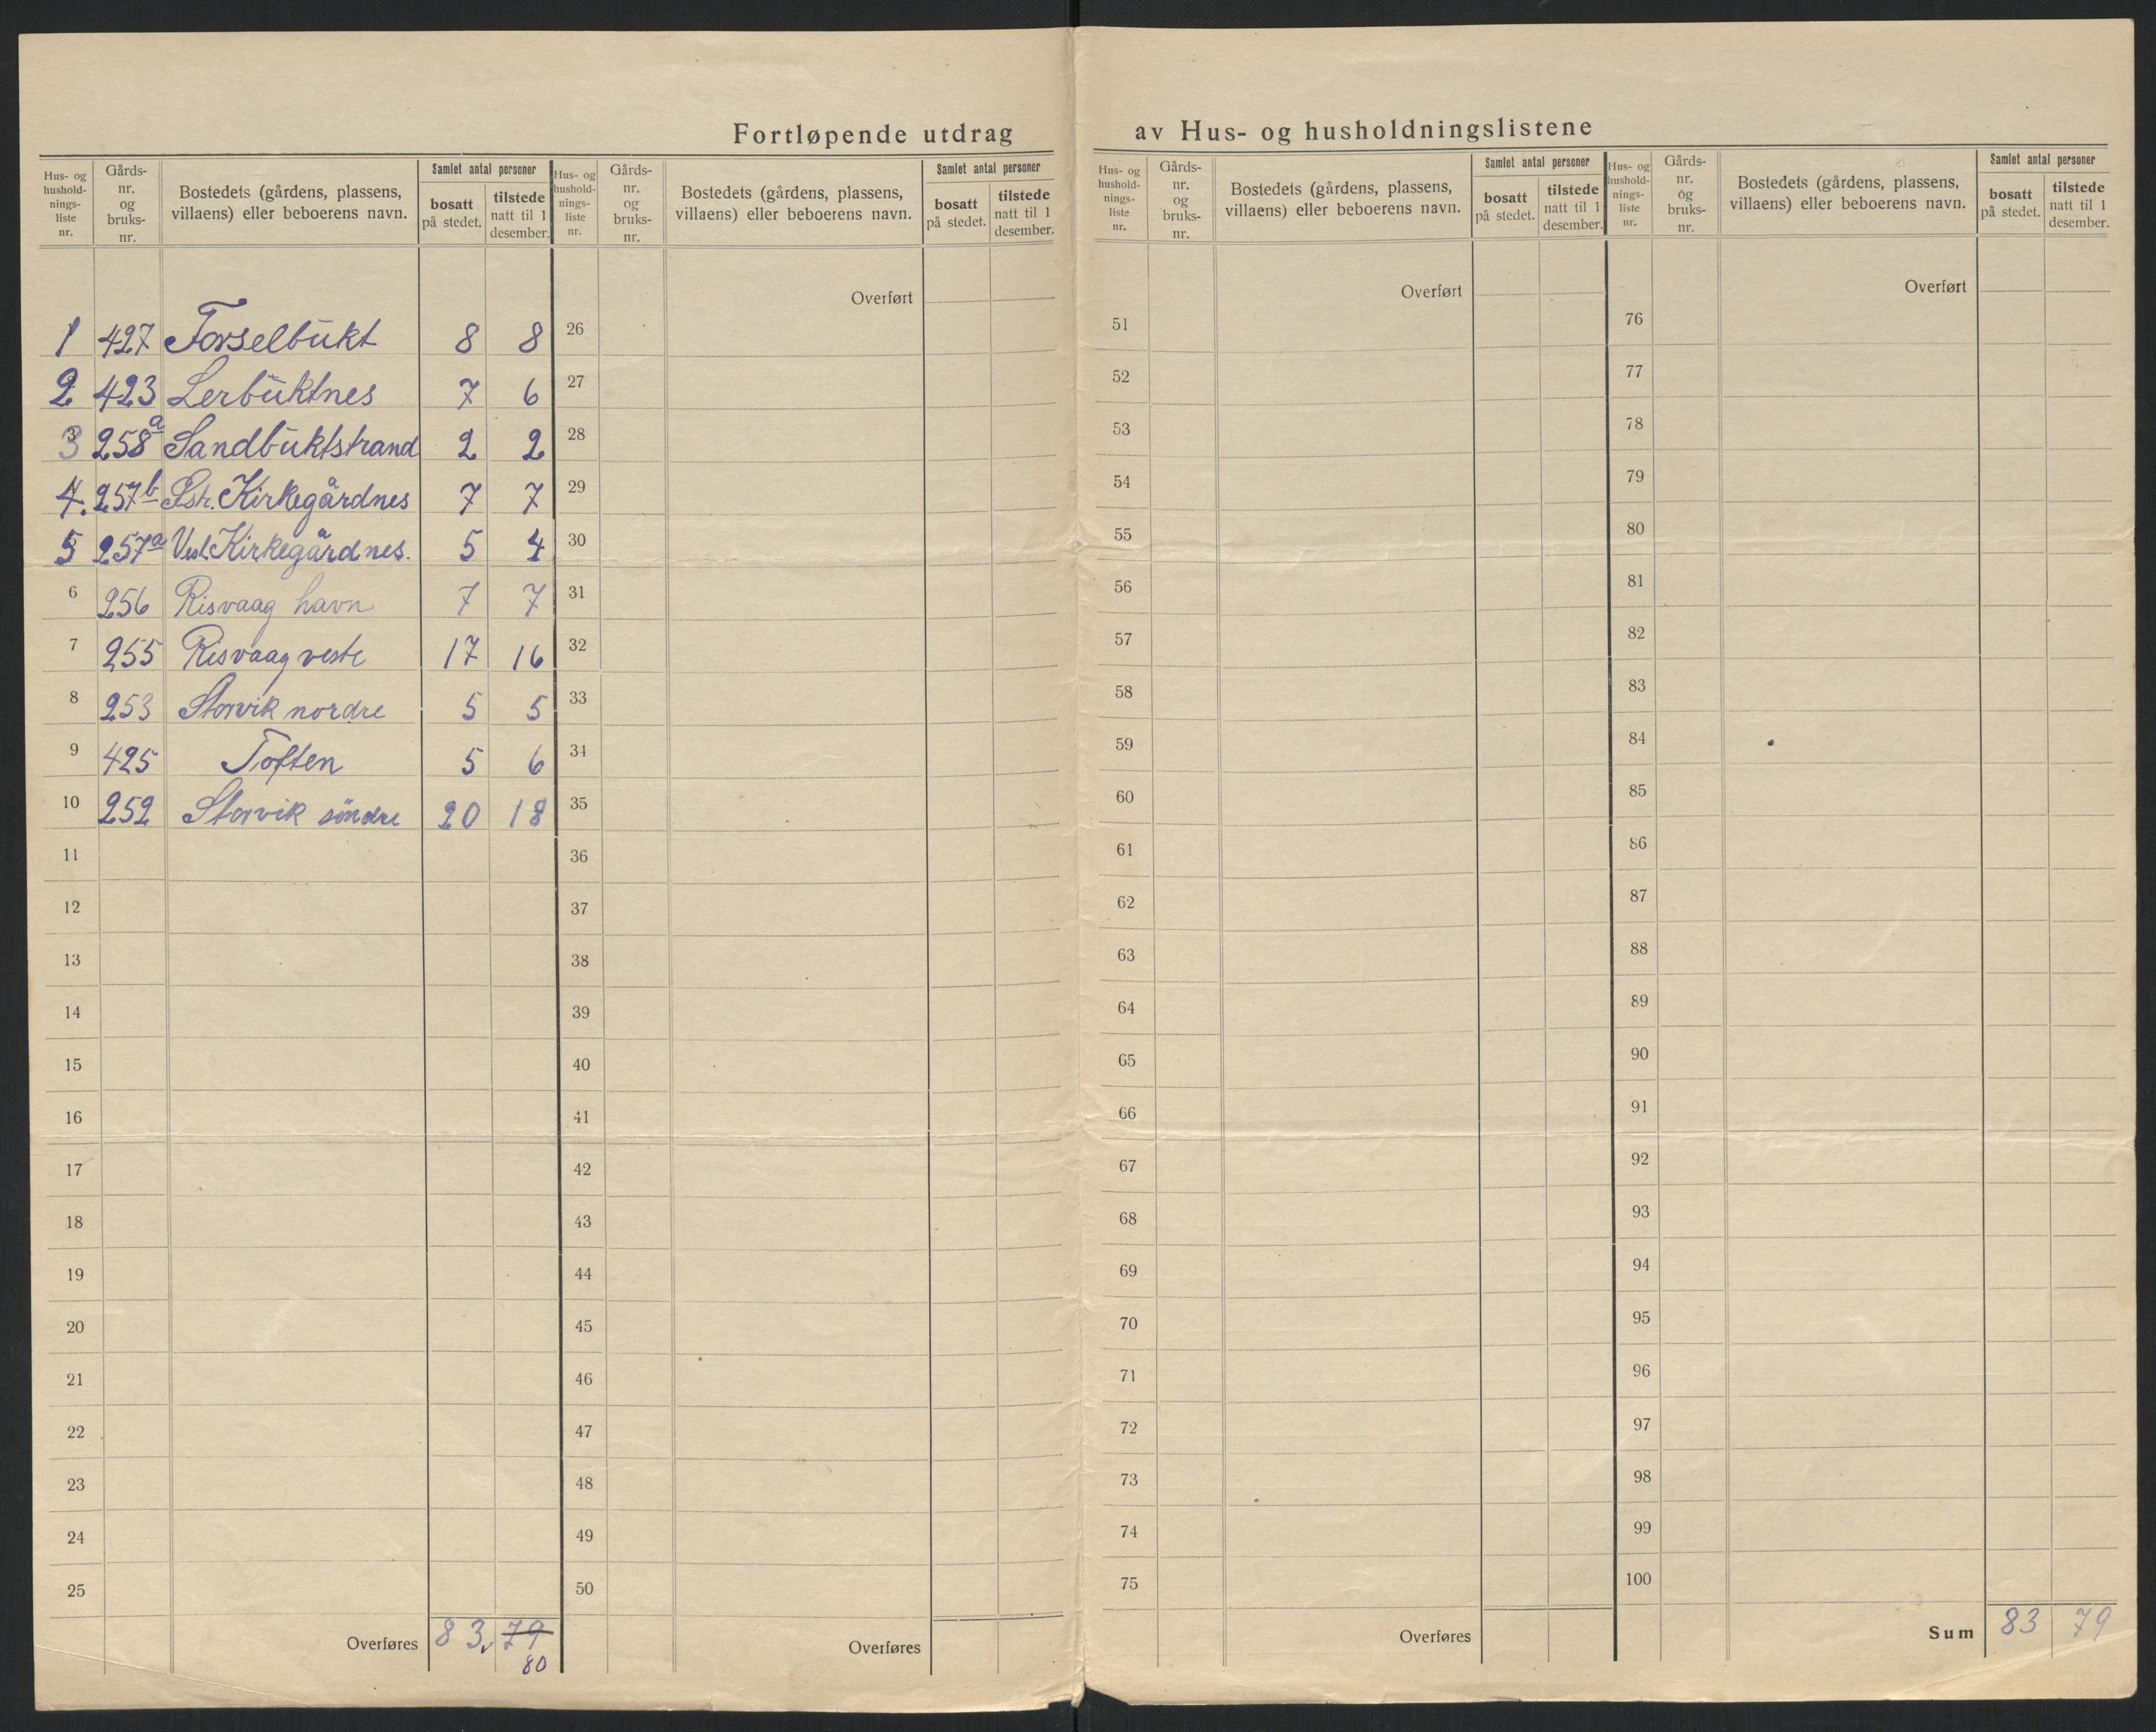 Fortløpende utdrag av Hus- og husholdningslistene
Hus- og hushold-nings-liste nr. Gårds-nr. og bruks-nr. Bostedets (gårdens, plassens, villaens) eller beboerens navn. Samlet antal personer bosatt på stedet. tilstede natt til 1 desember.
1 427 Torselbukt 8 8
2 423 Lerbuktnes 7 6
3 258a Sandbuktstrand 2 2
4. 257b Østr. Kirkegårdnes 7 7
5 257a Vest. Kirkegårdnes. 5 4
6 256 Risvaag havn 7 7
7 255 Risvaag vestr 17 16
8 253 Storvik nordre 5 5
9 425 Toften 5 6
10 252 Storvik söndre 20 18
11
12
13
14
15
16
17
18
19
20
21
22
23
24
25
Overføres 83 79
80
Hus- og hushold-nings-liste nr. Gårds-nr. og bruks-nr. Bostedets (gårdens, plassens, villaens) eller beboerens navn. Samlet antal personer bosatt på stedet. tilstede natt til 1 desember.
Overført
26
27
28
29
30
31
32
33
34
35
36
37
38
39
40
41
42
43
44
45
46
47
48
49
50
Overføres
Hus- og hushold-nings-liste nr. Gårds-nr. og bruks-nr. Bostedets (gårdens, plassens, villaens) eller beboerens navn. Samlet antal personer bosatt på stedet. tilstede natt til 1 desember.
Overført
51
52
53
54
55
56
57
58
59
60
61
62
63
64
65
66
67
68
69
70
71
72
73
74
75
Overføres
Hus- og hushold-nings-liste nr. Gårds-nr. og bruks-nr. Bostedets (gårdens, plassens, villaens) eller beboerens navn. Samlet antal personer bosatt på stedet. tilstede natt til 1 desember.
Overført
76
77
78
79
80
81
82
83
84
85
86
87
88
89
90
91
92
93
94
95
96
97
98
99
100
Sum 83 79